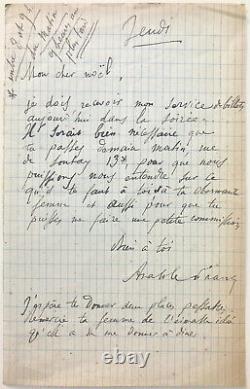 * entre 8 et 9h
du Matin
Jeudi
Mon cher noël,
je dois recevoir mon service de billets
aujourd'hui dans la soirée.
Il serait bien nécessaire que
tu passes demain matin, rue
de Sontay 13*, pour que nous
puissions nous entendre sur ce
qu'il te faut à toi & ta charmante
femme et aussi pour que tu
puisses me faire une petite commission
à toi
Anatole
J'espère te donner deux places
Remercie ta femme de l'aimable idée
qu'elle a de me donner à dîner